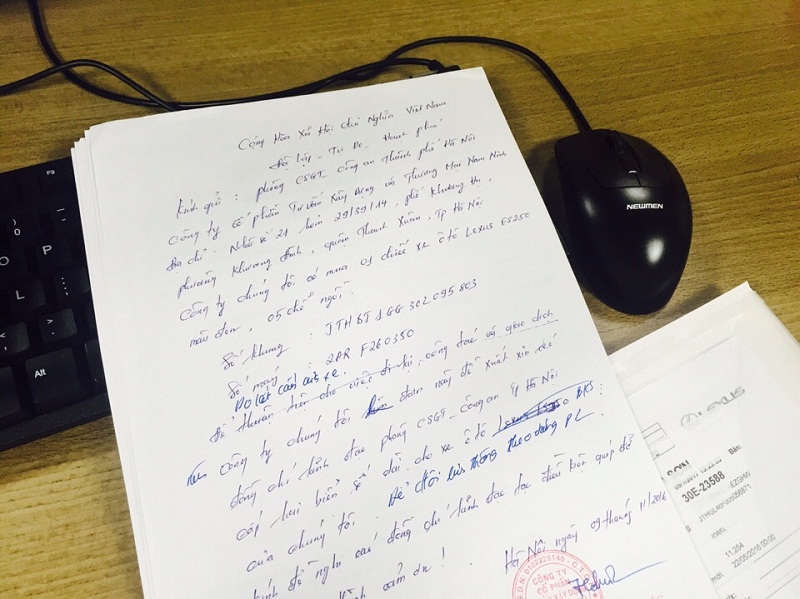 Cộng Hòa Xã Hội Chủ Nghĩa Việt Nam
Độc lập - Tự Do - Hạnh phúc
Kính gửi : phòng CSGT - Công an Thành phố Hà Nội
Công ty cổ phần Tư vấn Xây dựng và Thương Mại Nam Ninh
Địa chỉ : Nhà số 21 hẻm 29/39/14, phố Khương Hạ,
phường Khương Đình, quận Thanh Xuân, Tp Hà Nội
Công ty chúng tôi có mua 01 chiếc xe ô tô Lexus ES250
màu đen, 05 chỗ ngồi
Số khung : JTHBJ1GG302095803
Số máy : 2AR F260350
Do lắp cản
Để thuận tiện cho việc đi lại, công tác và giao dịch
Công ty chúng tôi làm đơn này đề xuất xin các
đồng chí lãnh đạo phòng CSGT - Công an Tp Hà Nội
cấp lưu biển số dài cho xe ô tô BKS:
của chúng tôi. Để lưu thông theo đúng PL.
Kính đề nghị các đồng chí lãnh đạo tạo điều kiện giúp đỡ
cảm ơn !
Hà Nội ngày 09 tháng 11/2016
CÔNG TY
CỔ PHẦN
NEWMEN
LEXUS
SON
30E-23588
11.254
22/05/2018 00:00
Alt
P
L
O